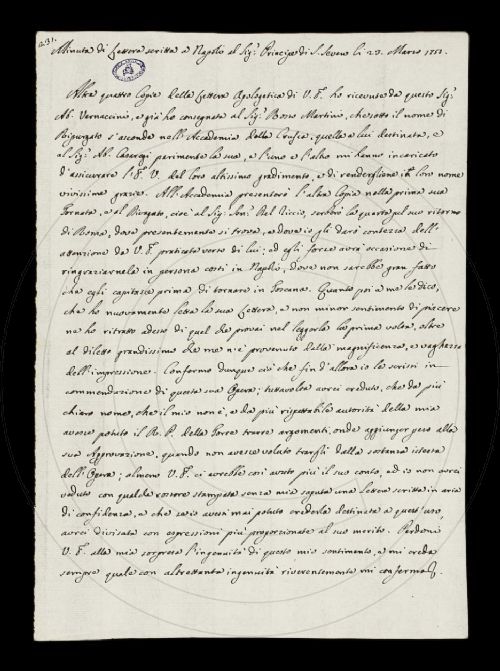 231.
Minuta di Lettera scritta a Napoli al Sig.r Principe di S. Severo li 23. Marzo 1751.
Altre quattro Copie della Lettera Apologetica di V. E. ho ricevute da questo Sig.r
Ab. Vernaccini, e già ho consegnata al Sig.r Bosso Martini, che sotto il nome di
Ripurgato s'asconde nell'Accademia della Crusca, quella a lui destinata, e
al Sig.r Ab. parimente la sua, e l'uno e l'altro mi hanno incaricato
d'assicurare l'E. V. del loro altissimo gradimento, e di rendergliene in lor nome
vivissime grazie. All'Accademia presenterò l'altra Copia nella prima sua
Tornata, e al cioè al Sig.r Sen. Del Riccio, serberò la quarta pel suo ritorno
di Roma, dove presentemente si trova, e dove io gli darò contezza dell'
attenzione da V. E. praticata verso di lui; ed egli forse avrà occasione di
ringraziarnela in persona costì in Napoli, dove non sarebbe gran fatto
che egli capitasse prima di tornare in Toscana. Quanto poi a me le dico,
che ho nuovamente letta la sua Lettera, e non minor sentimento di piacere
ne ho ritratto adesso di quel che provai nel leggerla la prima volta, oltre
al diletto grandissimo che me n'è provenuto dalla magnificenza, e vaghezza
dell'impressione. Confermo dunque ciò che fin d'allora io le scrissi in
commendazione di questa sua Opera; tuttavolta avrei creduto, che da più
chiaro nome, che il mio non è, e da più rispettabile autorità della mia
avesse potuto il R. P. della Torre trarre argomenti, onde aggiunger peso alla
sua Approvazione, quando non avesse voluto trarsli dalla sostanza istessa
dell'Opera; almeno V. E. ci avrebbe così avuto più il suo conto, ed io non avrei
veduto con qualche rossore stampata senza mia saputa una Lettera scritta in aria
di confidenza, e che se io avessi mai potuto crederla destinata a quest'uso,
avrei divisata con espressioni più proporzionate al suo merito. Perdoni
V. E. alla mia sorpresa l'ingenuità di questo mio sentimento, e mi creda
sempre quale con altrettanta ingenuità riverentemente mi confermo.